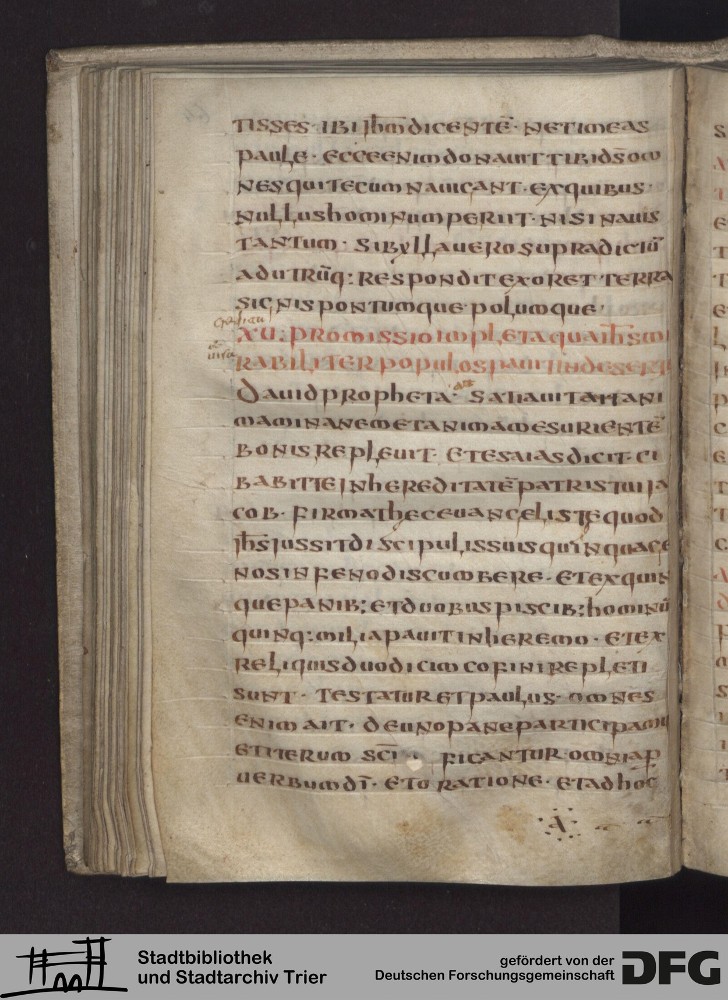 tisses · ibi ihm̄ dicentē · netimeas
paule · ecceenim donauit tibi dſ̄ om
nes qui tecum nauigant · exquibus ·
nullus hominum periit · nisi nauis
tantum · sibylla uero supradictū
adutrūq: respondit exoret terra
signis pontumque polumque ·
xu · promissio impleta qua ihſ̄ mi
rabiliter populos pauit in desert
dauid propheta · satiauit
mam inanem et animam esurientē
bonis repleuit · et esaias dicit · ci
babit te in hereditatē patris tui ia
cob · firmat hec euangelista quod
ihſ̄ iussit discipulis suis quinquage
nos in feno discumbere · et exquin
que panib: et duobus piscib: hominū
quinq: milia pauit in heremo · et ex
reliquis duodicim cofini repleti
sunt · testatur et paulus · omnes
enim ait · de uno pane participamu
et iterum sc̄i ficantur omnia p̱
uerbum dī · et oratione · et ad hoc
Stadtbibliothek
und Stadtarchiv Trier
gefördert von der
Deutschen Forschungsgemeinschaft
DFG